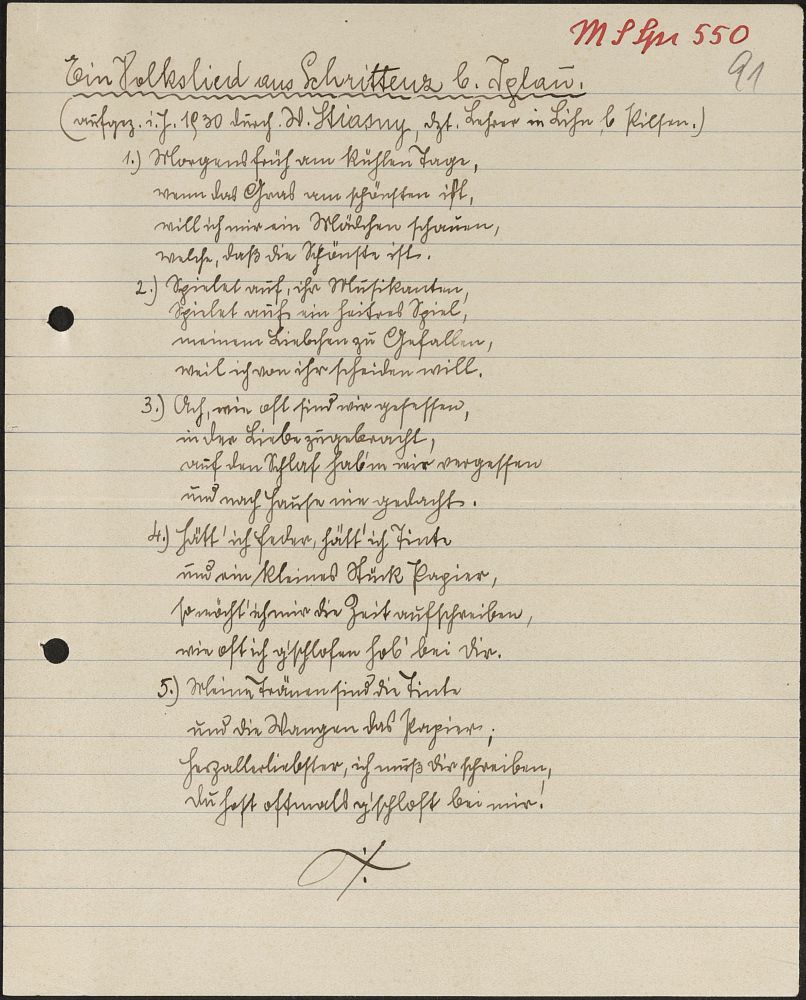 MSSpr 550
91
Ein Volkslied aus Schrittenz b. Iglau.
(aufgez. i. J. 1930 durch W. Stiasny, dzt. Lehrer in Lihn b Pilsen.)
1.) Morgens früh am kühlen Tage,
wenn das Gras am schönsten ist,
will ich mir ein Mädchen schauen,
welche, daß die Schönste ist.
2.) Spielet auf, ihr Musikanten,
Spielet auf ein heitres Spiel,
meinem Liebchen zu Gefallen,
weil ich von ihr scheiden will.
3.) Ach, wie oft sind wir gesessen,
in der Liebe zugebracht,
auf den Schlaf hab'm wir vergessen
und nach Hause nie gedacht.
4.) Hätt' ich Feder, hätt' ich Tinte
und ein kleines Stück Papier,
so möcht' ich mir die Zeit aufschreiben,
wie oft ich g'schlofen hob' bei Dir.
5.) Meine Tränen sind die Tinte
und die Wangen das Papier;
Herzallerliebster, ich muß Dir schreiben,
du host oftmals g'schloft bei mir.